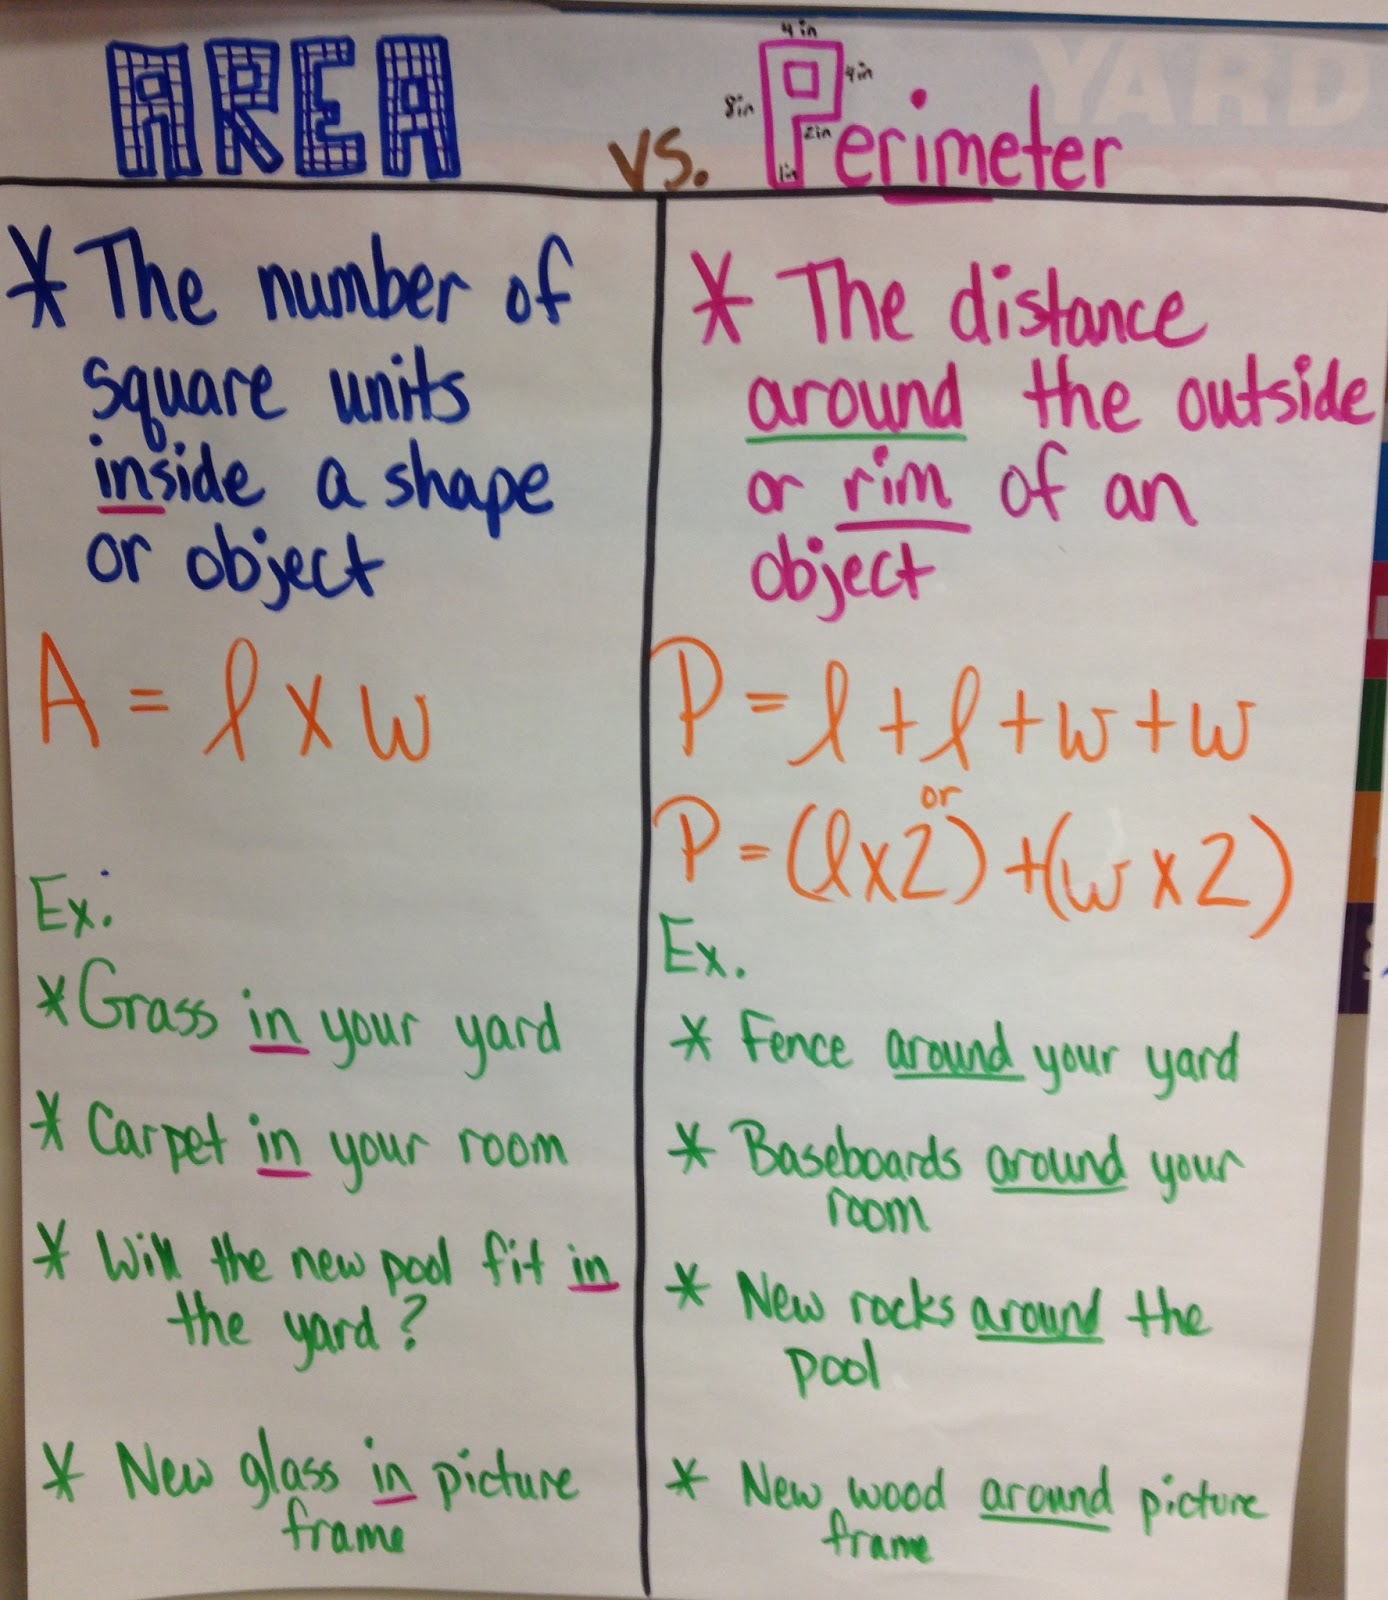 AREA vs. Perimeter
4in
4in
8in
2in
1in
YARD
* The number of
square units
inside a shape
or object
A = l x w
Ex:
* Grass in your yard
* Carpet in your room
* Will the new pool fit in
the yard?
* New glass in picture
frame
* The distance
around the outside
or rim of an
object
P = l + l + w + w
or
P = (l x 2) + (w x 2)
Ex.
* Fence around your yard
* Baseboards around your
room
* New rocks around the
pool
* New wood around picture
frame